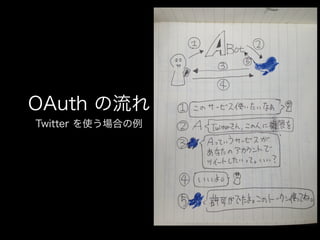 OAuth の流れ
Twitter を使う場合の例
① A Bot ②
③ ⑤
④
① このサービス使いたいなぁ
② A Twitterさん、この人に権限を
③ Aっていうサービスが
あなたのアカウントで
ツイートしたいってよ。いい?
④ いいよ。
⑤ 許可がでたよ。このトークン使ってね。